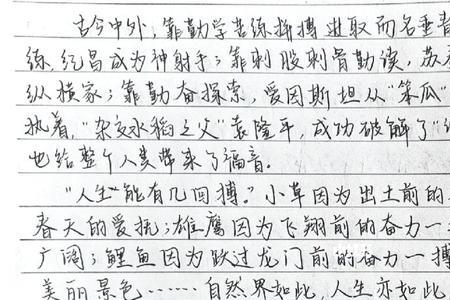 古今中外，靠勤学苦练拼搏进取而名垂青
练，纪昌成为神射手；靠刺股刺骨勤读，苏
纵横家；靠勤奋探索，爱因斯坦从“笨瓜”
执着，“杂交水稻之父”袁隆平，成功破解了“
也给整个人类带来了福音。
“人生能有几回搏。”小草因为出土前的
春天的爱抚；雄鹰因为飞翔前的奋力一
广阔；鲤鱼因为跃过龙门前的奋力一搏
美丽景色……自然界如此，人生亦如此